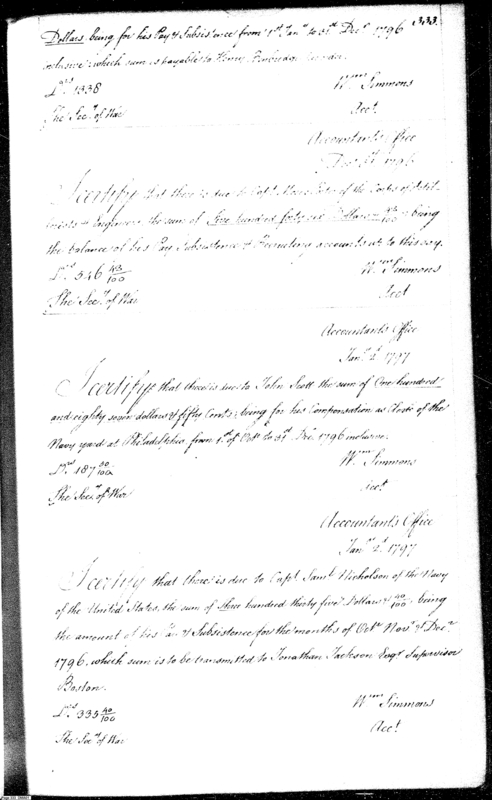 333.
Dollars. being for his Pay & Subsistence from 1st Jany to 31st Decr. 1796
inclusive: which sum is payable to Henry
Drs. 1338
Wm Simmons
The Secy. of War
Acct.
Accountants Office
1796
I certify that there is due to Capt. of the Corps of Artil-
lerists & Engineers the sum of Five hundred forty six Dollars & 43/100 being
the balance of his Pay Subsistence & Recruiting accounts up to this day.
Drs. 546 43/100
Wm Simmons
The Secy. of War
Acct
Accountants Office
Jany. 2d. 1797
I certify that there is due to John Scott the sum of One hundred
and eighty seven dollars & fifty Cents; being for his Compensation as Clerk of the
Navy yard at Philadelphia from 1st. of Octr. to 31st. Decr. 1796 inclusive.
Drs. 187 50/100
Wm Simmons
The Secy. of War
Acct
Accountants Office
Jany. 2d. 1797
I certify that there is due to Capt. Saml. Nicholson of the Navy
of the United States, the sum of three hundred thirty five Dollars & 40/100 being
the amount of his Pay & Subsistence for the months of Octr. Novr. & Decr.
1796. which sum is to be transmitted to Jonathan Jackson Esqr. Supervisor
Boston.
Drs. 335 40/100
Wm Simmons
The Secy. of War
Acct.